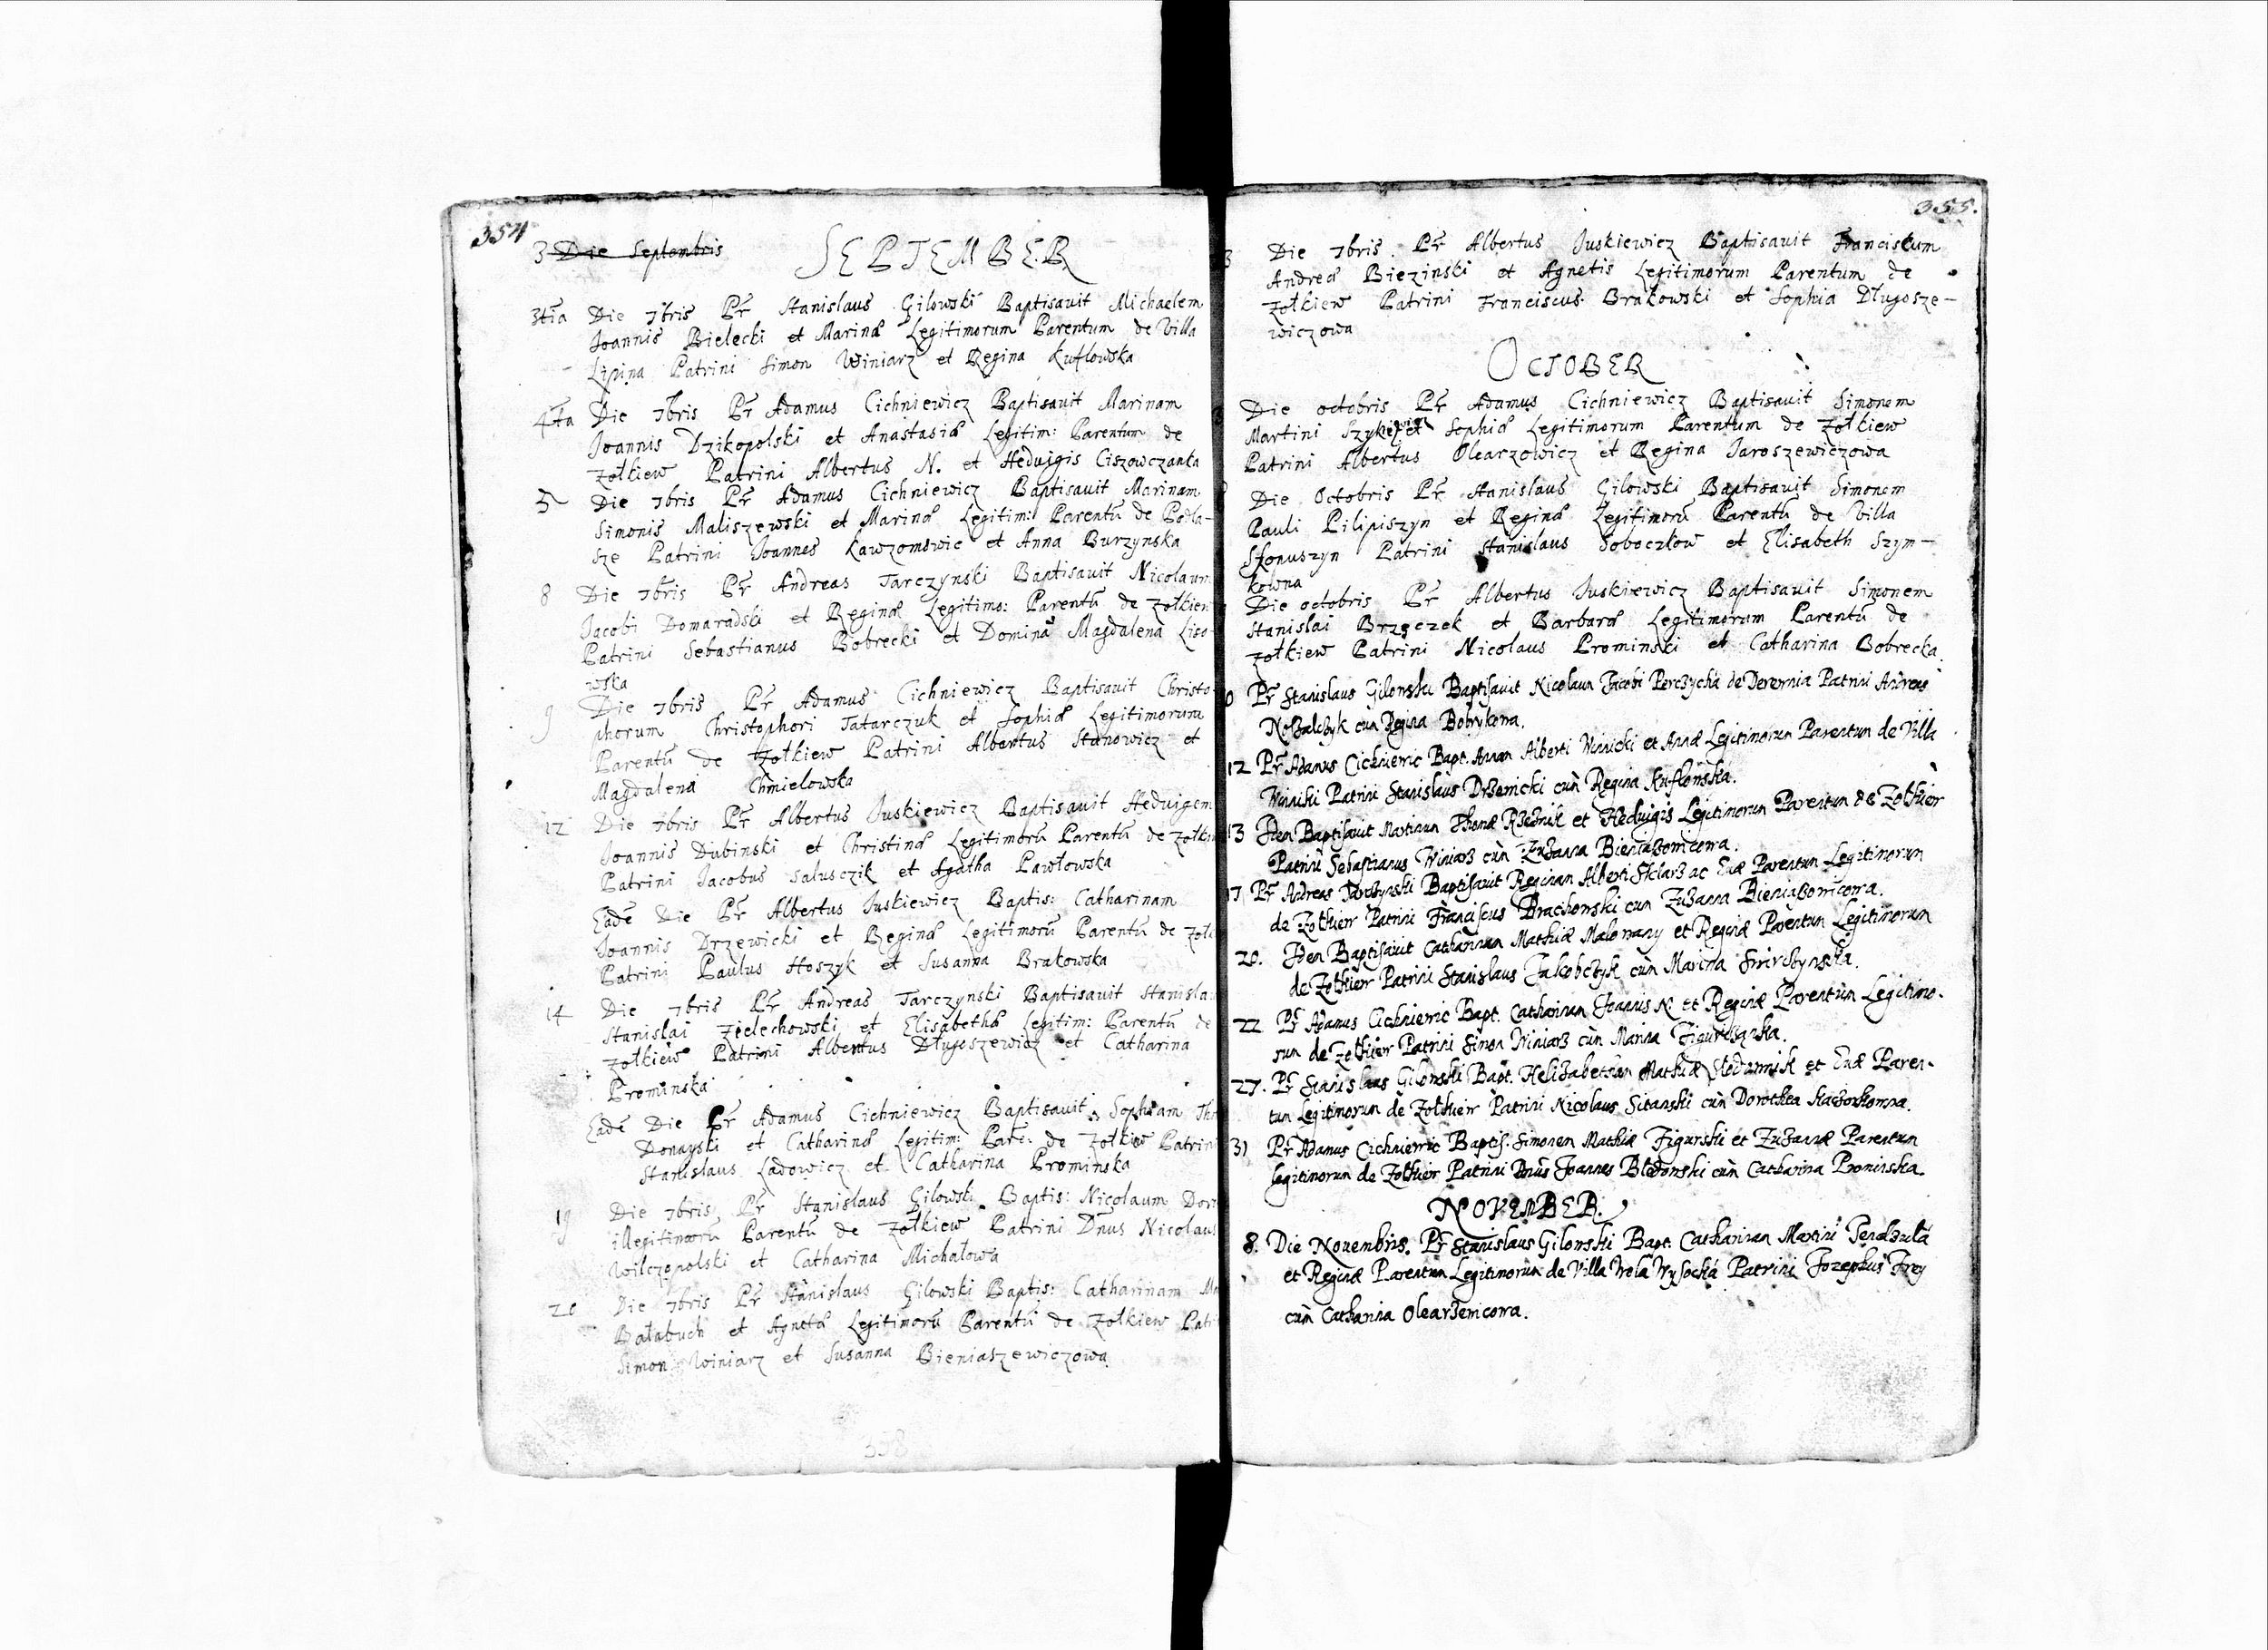 354
3 Die Septembris
SEPTEMBER
3tia Die 7bris Pr Stanislaus Gilowski Baptisauit Michaelem
Joannis Bielecki et Marinæ Legitimorum Parentum de Villa
Lipina Patrini Simon Winiarz et Regina Kuflowska
4ta Die 7bris Pr Adamus Cichniewicz Baptisauit Marinam
Joannis Dzikopolski et Anastasiæ Legitim: Parentum de
Zołkiew Patrini Albertus N. et Hedvigis Ciszowczanka
5 Die 7bris Pr Adamus Cichniewicz Baptisauit Marinam
Simonis Maliszewski et Marinæ Legitim: Parentū de
sze Patrini Joannes et Anna Burzynska
8 Die 7bris Pr Andreas Tarczynski Baptisauit Nicolaum
Jacobi Domaradski et Reginæ Legitimo: Parentū de Zołkiew
Patrini Sebastianus Bobrecki et Domina Magdalena Liso-
wska
9 Die 7bris Pr Adamus Cichniewicz Baptisauit Christo-
phorum Christophori Tatarczuk et Sophiæ Legitimorum
Parentū de Zołkiew Patrini Albertus Stanowicz et
Magdalena Chmielowska
12 Die 7bris Pr Albertus Juskiewicz Baptisauit Hedvigem
Joannis Dubinski et Christinæ Legitimorū Parentū de
Patrini Jacobus Salusczik et Agatha Pawłowska
Eadē Die Pr Albertus Juskiewicz Baptis: Catharinam
Joannis Drzewicki et Reginæ Legitimorū Parentū de
Patrini Paulus Hoszyk et Susanna Brakowska
14 Die 7bris Pr Andreas Tarczynski Baptisauit
Stanislai Zielechowski et Elisabethæ Legitim: Parentū de
Zołkiew Patrini Albertus Długoszewicz et Catharina
Prominska
Eadē Die Pr Adamus Cichniewicz Baptisauit Sophiam
Donayski et Catharinæ Legitim: Pare: de Zołkiw Patrini
Stanislaus Ladowicz et Catharina Prominska
19 Die 7bris Pr Stanislaus Gilowski Baptis: Nicolaum
illegitimorū Parentū de Zołkiew Patrini Dnus Nicolaus
Wilczopolski et Catharina Michałowa
Die 7bris Pr Stanislaus Gilowski Baptis: Catharinam
Bałabuch et Agnetæ Legitimorū Parentū de Zołkiew
Simon Winiarz et Susanna Bieniaszewiczowa
358
355.
3 Die 7bris Pr Albertus Juskiewicz Baptisauit Franciscum
Andreæ Biezinski et Agnetis Legitimorum Parentum de
Zołkiew Patrini Franciscus Brakowski et Sophia Długosze-
wiczowa
OCTOBER
Die octobris Pr Adamus Cichniewicz Baptisauit Simonem
Martini et Sophiæ Legitimorum Parentum de Zołkiew
Patrini Albertus Olearzowicz et Regina Jaroszewiczowa
Die Octobris Pr Stanislaus Gilowski Baptisauit Simonem
Pauli Pilipiszyn et Reginæ Legitimorū Parentū de Villa
Patrini Stanislaus Soboczkow et Elisabeth Szym-
kowna
Die octobris Pr Albertus Juskiewicz Baptisauit Simonem
Stanislai Brzęczek et Barbaræ Legitimorum Parentū de
Zołkiew Patrini Nicolaus Prominski et Catharina Bobrecka
0 Pr Stanislaus Gilowski Baptisauit Nicolaum Jacobi de Derewnia Patrini Andreas
cum Regina Bobrykowa.
12 Pr Adamus Cichniewic Bapt. Annam Alberti Winnicki et Annæ Legitimorum Parentum de Villa
Winniki Patrini Stanislaus Drzewicki cum Regina Kuflowska.
13 Idem Baptisauit Martinum Thomæ Rzeźnik et Hedvigis Legitimorum Parentum de Zołkiew
Patrini Sebastianus Winiarz cum Zuzanna Bieniaszowicowa.
17 Pr Andreas Tarczynski Baptisauit Reginam Alberti Sklarz ac Euæ Parentum Legitimorum
de Zołkiew Patrini Franciscus Brachowski cum Zuzanna Bieniaszowicowa.
20. Idem Baptisauit Catharinam Mathiæ et Reginæ Parentum Legitimorum
de Zołkiew Patrini Stanislaus Jakobczyk cum Marina
22 Pr Adamus Cichniewic Bapt. Catharinam Joannis N. et Reginæ Parentum Legitimo-
rum de Zołkiew Patrini Simon Winiarz cum Marina
27. Pr Stanislaus Gilowski Bapt. Helizabetham Mathiæ et Euæ Paren-
tum Legitimorum de Zołkiew Patrini Nicolaus Sitanski cum Dorothea
31 Pr Adamus Cichniewic Baptis. Simonem Mathiæ Figurski et Zuzannæ Parentum
legitimorum de Zołkiew Patrini Dnus Joannes Błedowski cum Catharina Prominska.
NOVEMBER.
8. Die Nouembris. Pr Stanislaus Gilowski Bapt. Catharinam Martini
et Reginæ Parentum Legitimorum de Villa Wola Wysocka Patrini Jozephus
cum Catharina Olearzewicowa.